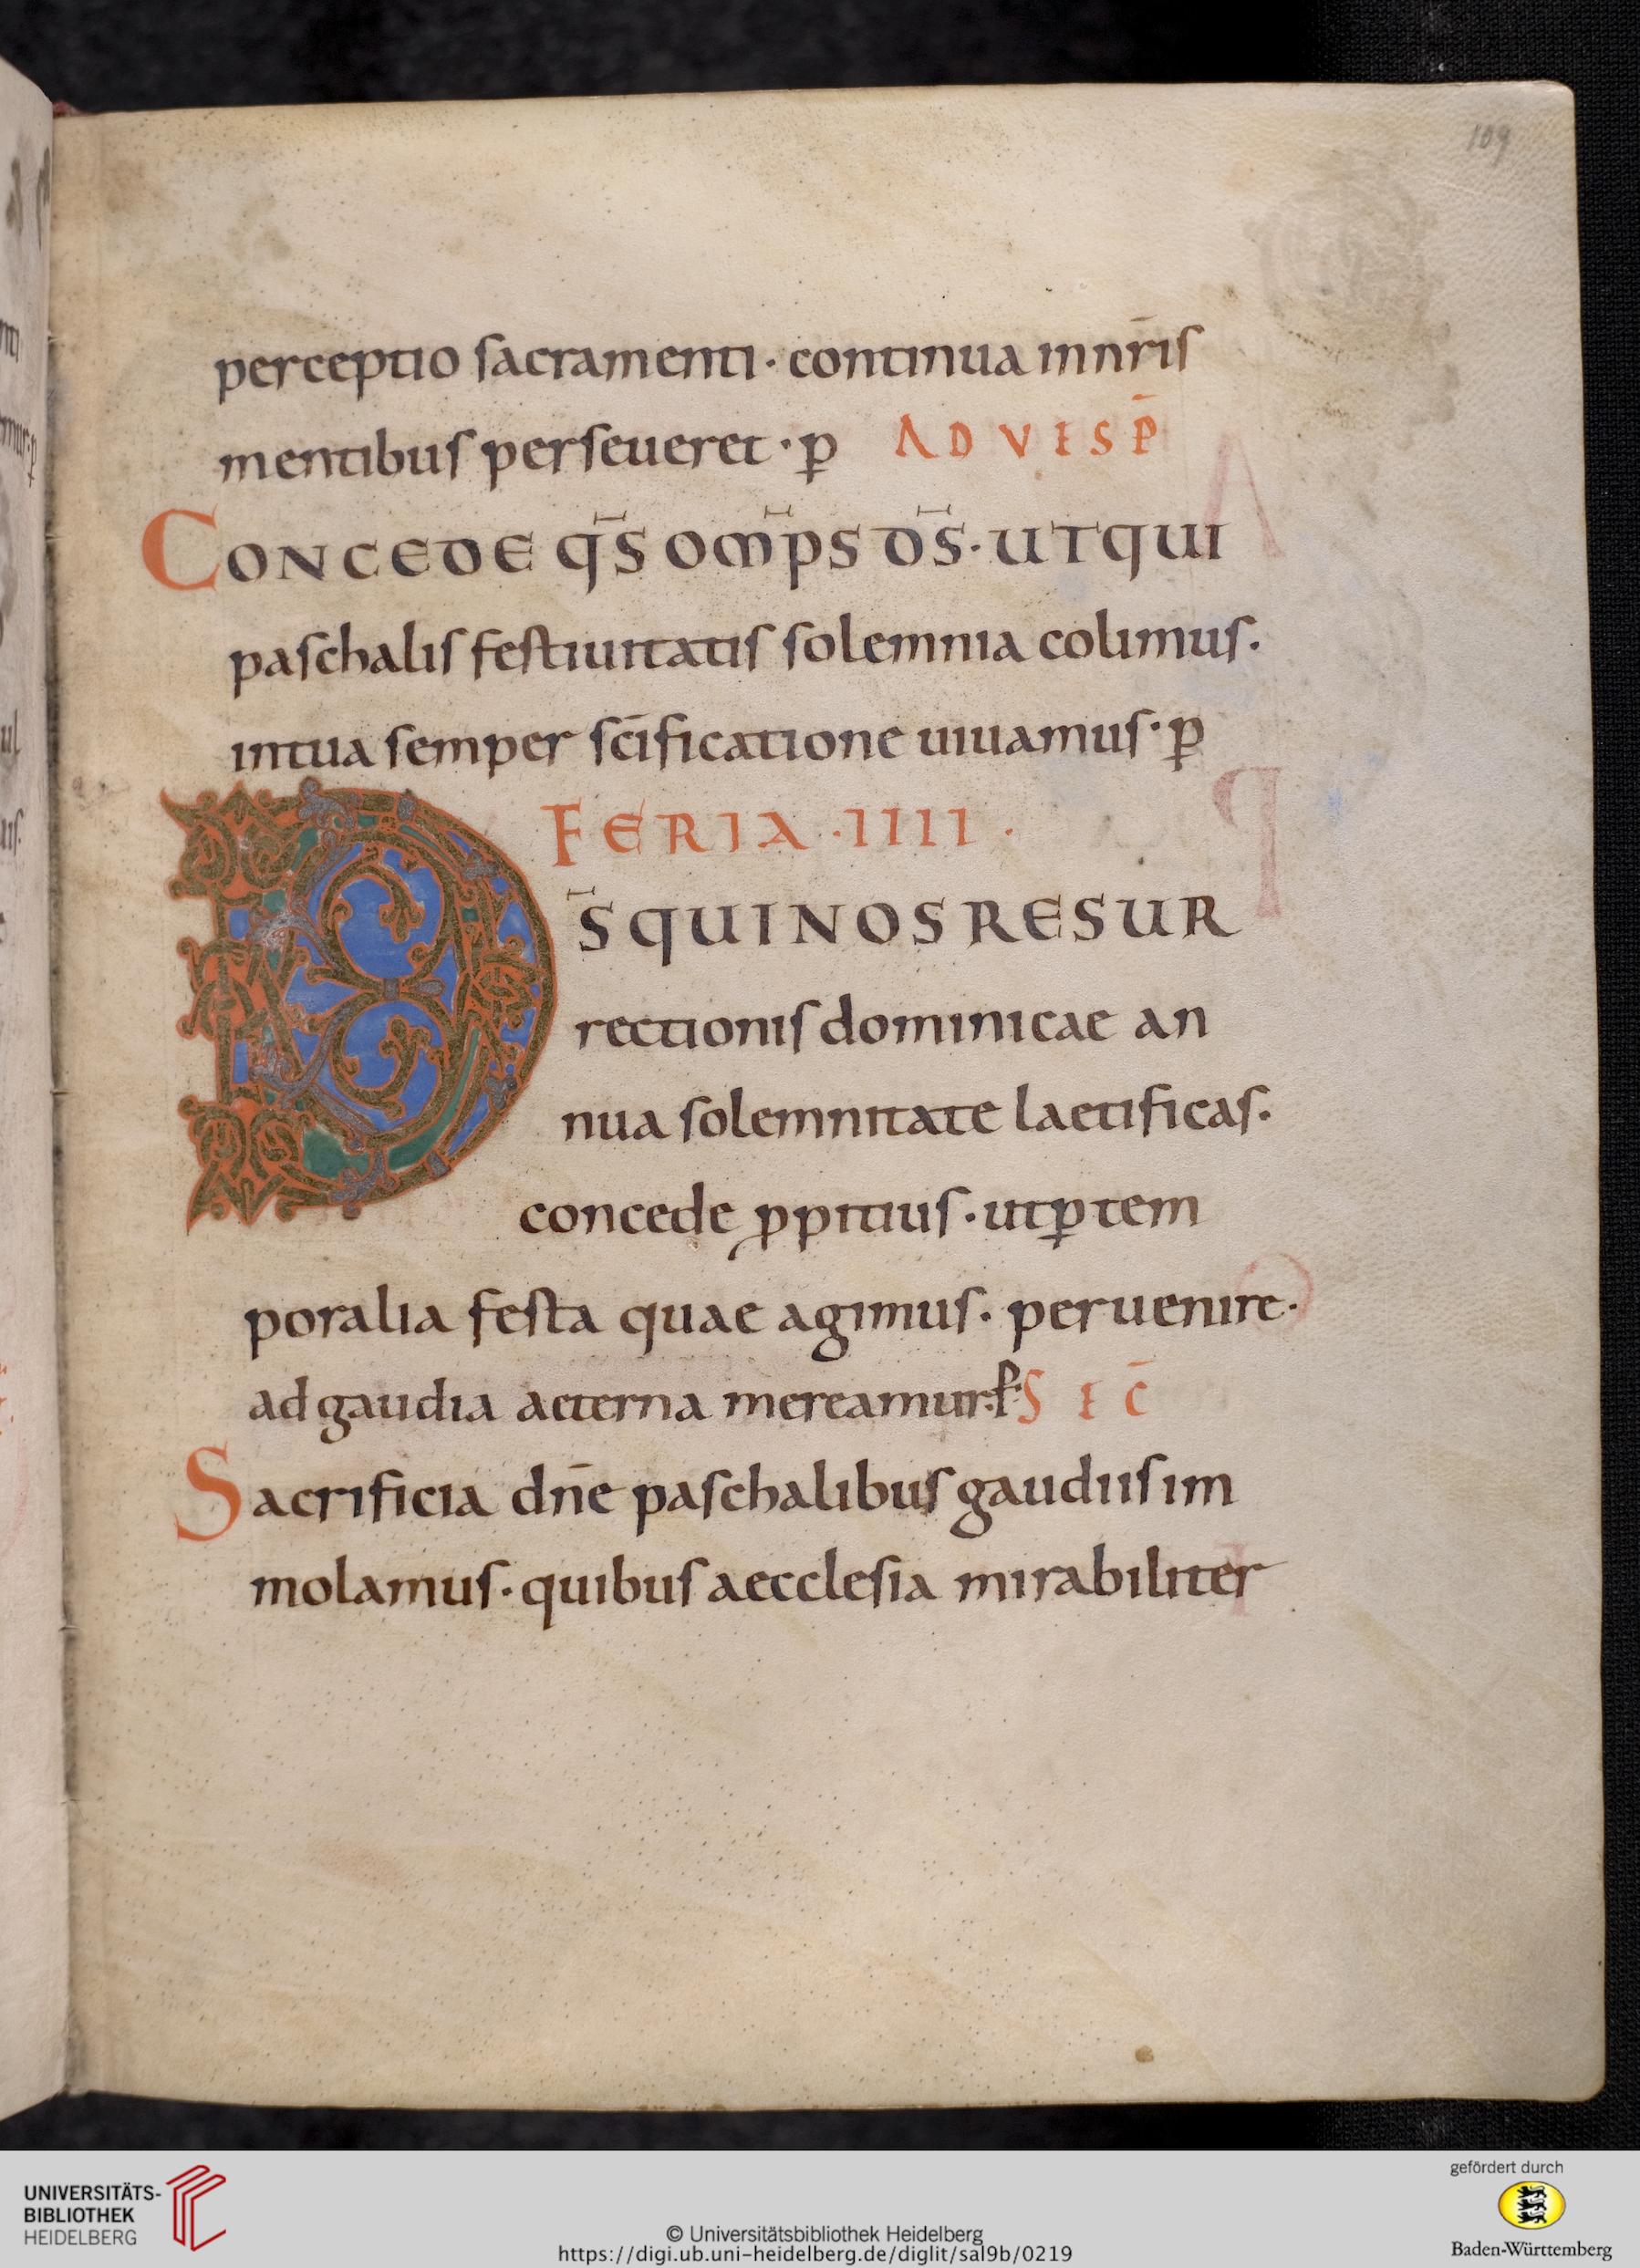 109
perceptio sacramenti · continua innr̄is
mentibus perseueret · ꝑ AD VESP̄
CONCEDE q̄S OM̄PS D̄S · UT QUI
paschalis festiuitatis solemnia colimus.
intua semper sc̄ificatione uiuamus · ꝑ
FERIA · IIII ·
D
S̄ QUI NOS RESUR
rectionis dominicae an
nua solemnitate laetificas.
concede ꝓpitius · utꝑtem
poralia festa quae agimus. peruenire.
ad gaudia aeterna mereamur. ꝑ SEC̄
Sacrificia dn̄e paschalibus gaudiis im
molamus · quibus aecclesia mirabiliter
UNIVERSITÄTS-
BIBLIOTHEK
HEIDELBERG
© Universitätsbibliothek Heidelberg
https://digi.ub.uni-heidelberg.de/diglit/sal9b/0219
gefördert durch
Baden-Württemberg